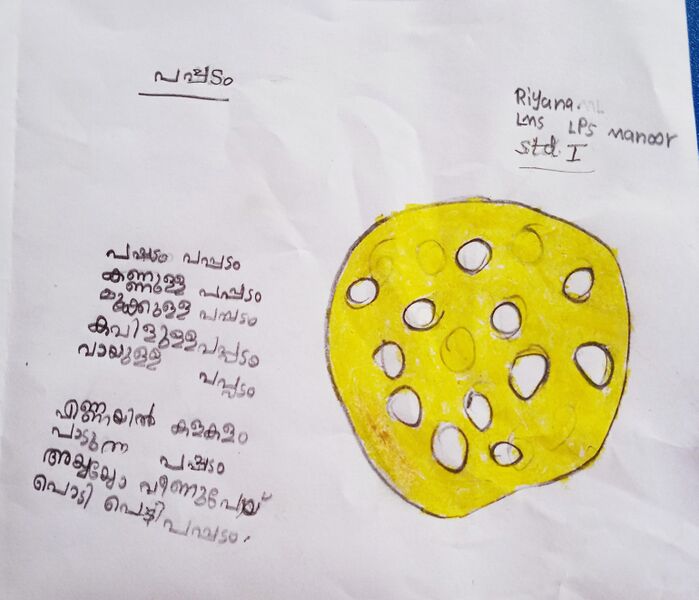 പപ്പടം
Riyana. ML
Lms LPS Manoor
std. I
പപ്പടം പപ്പടം
കണ്ണുള്ള പപ്പടം
മൂക്കുള്ള പപ്പടം
കവിളുള്ള പപ്പടം
വായുള്ള പപ്പടം
എണ്ണയിൽ കളകളം
പാടുന്ന പപ്പടം
അയ്യയ്യോ വീണുപോയ്
പൊടി പെട്ടി പപ്പടം.